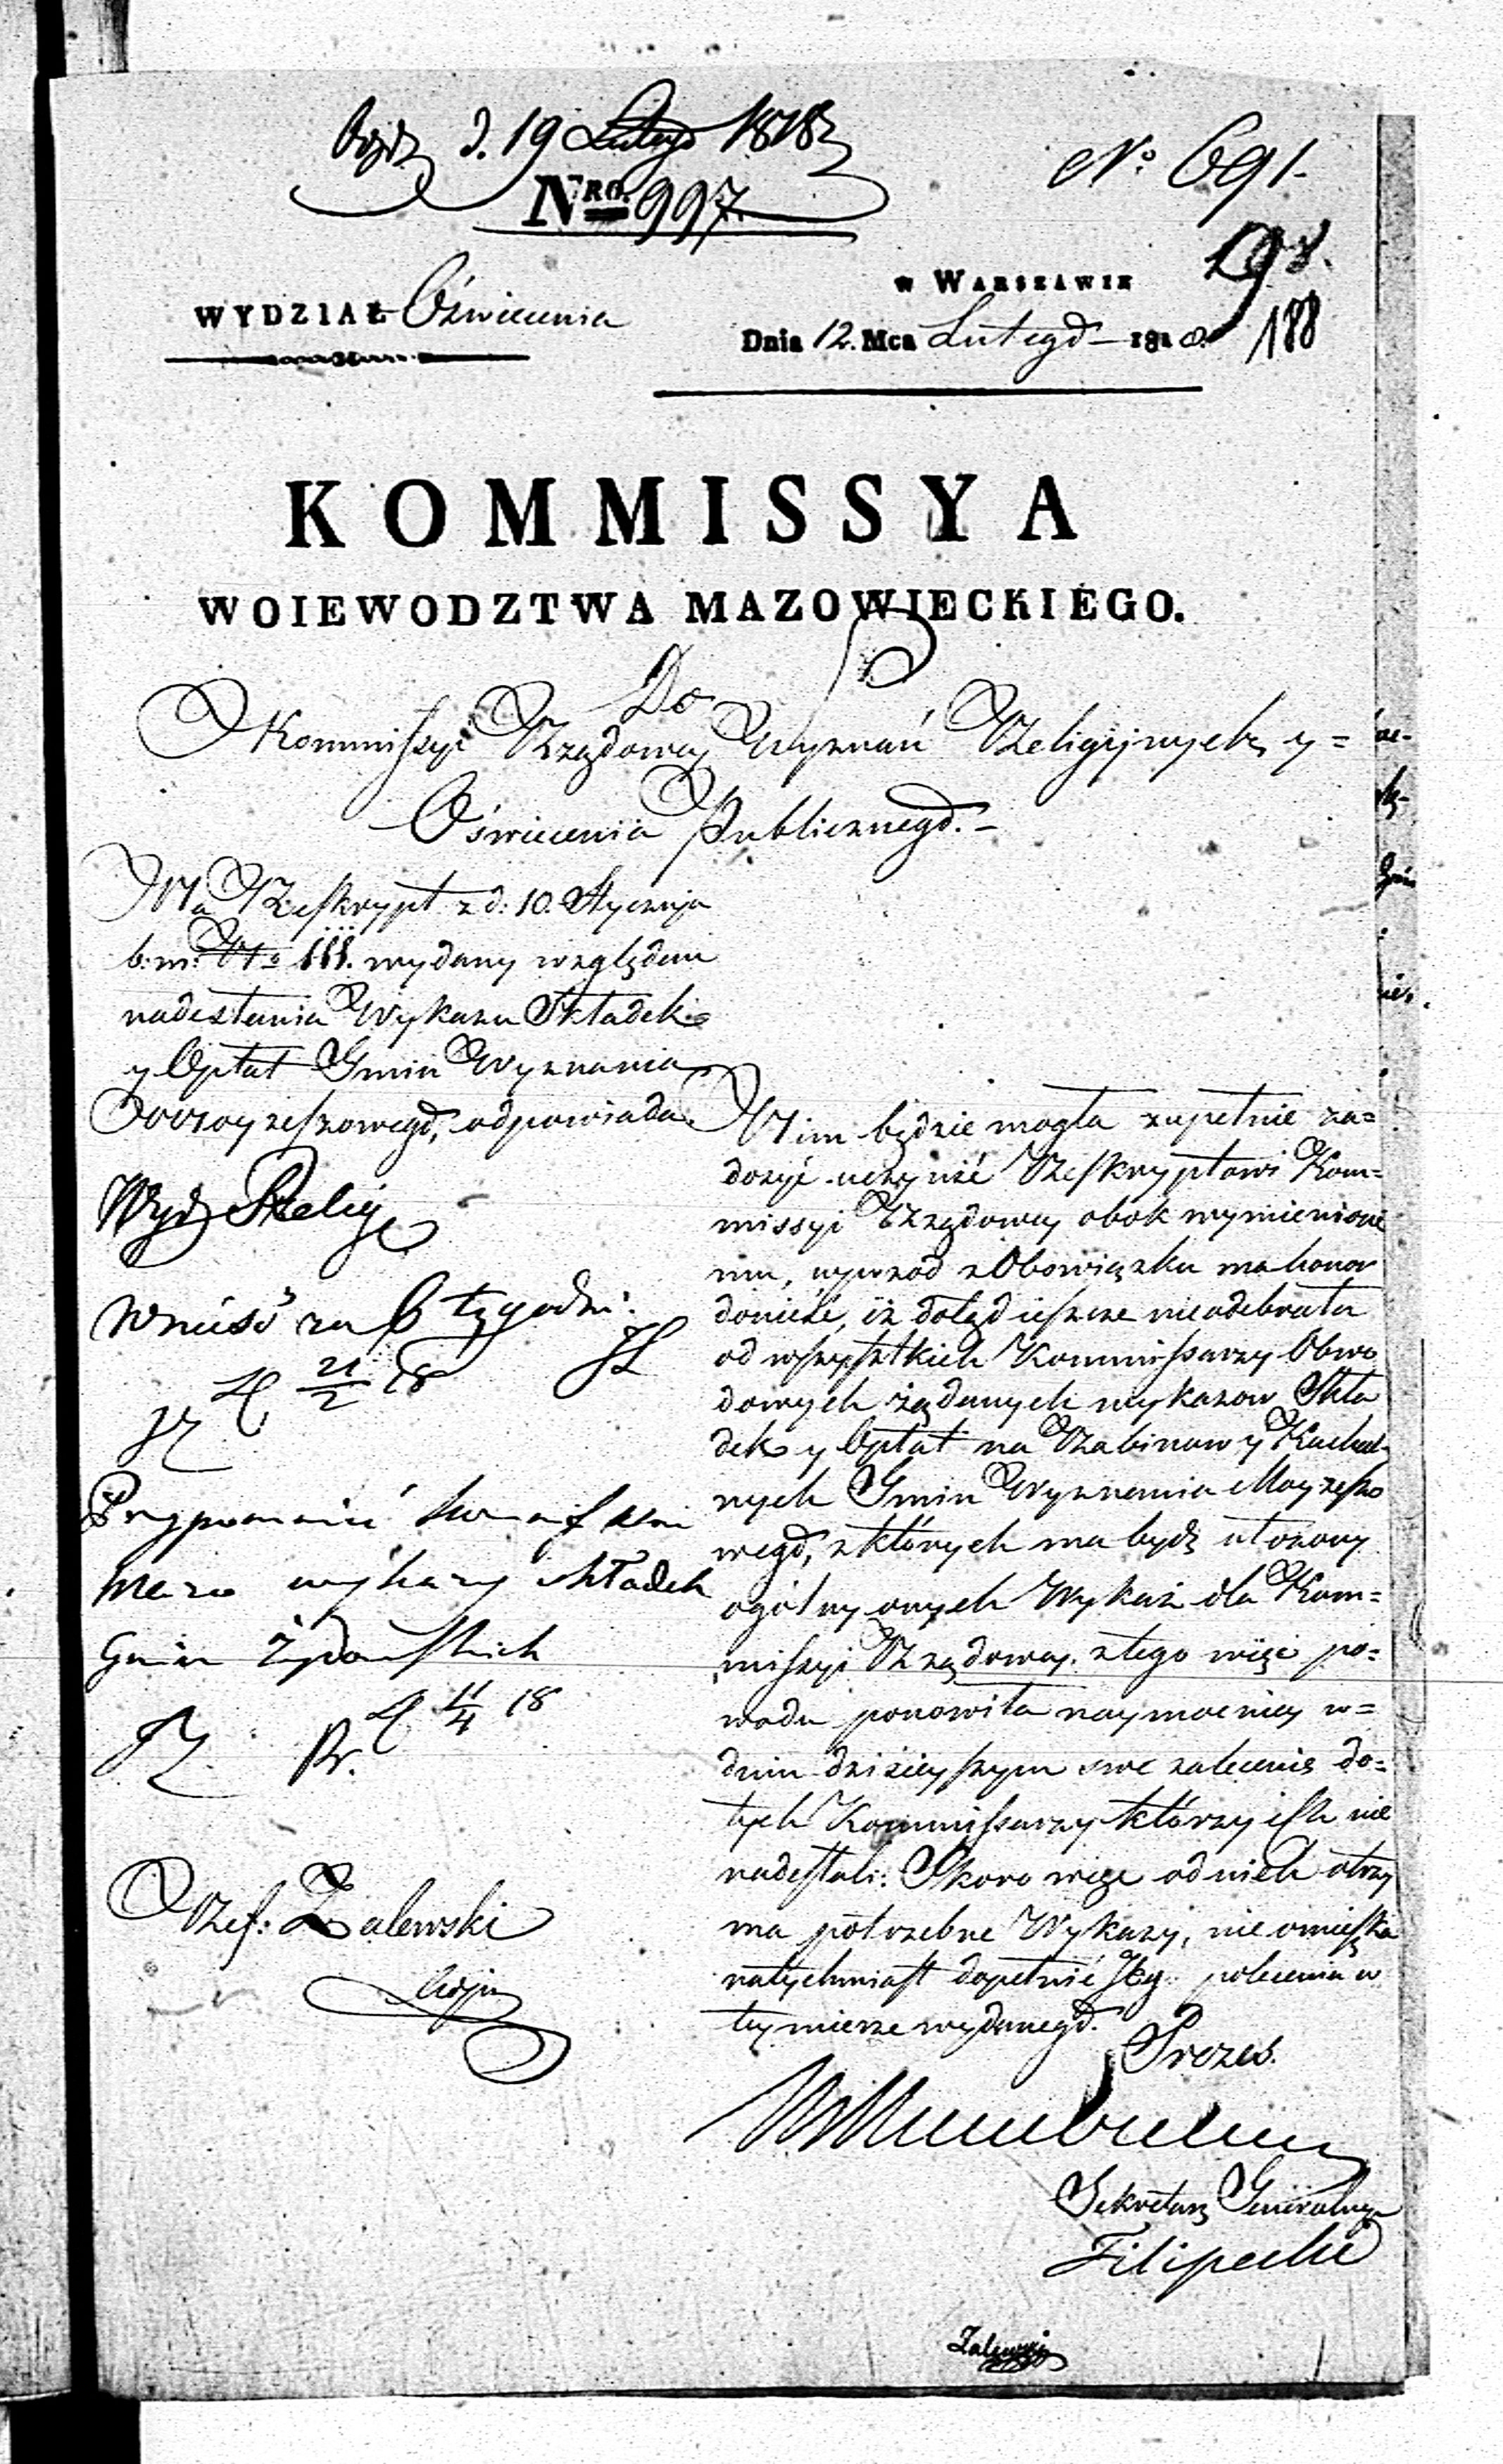 d. 19 Lutego 1818
No 691.
NRO. 997.
198.
188
WYDZIAŁ Oświecenia
w WARSZAWIE
Dnia 12. Mca Lutego 1818.
KOMMISSYA
WOIEWODZTWA MAZOWIECKIEGO.
Do
Kommissyi Rządowey Wyznań Religijnych y =
Oświecenia Publicznego. -
Na Reskrypt z d: 10. Stycznia
b: m: No 111. wydany względem
nadesłania Wykazu Składek
y Opłat Gmin Wyznania
Moyzeszowego, odpowiada.
Wydz Relig
Wnieść za 6 tygodni.
21/2 18
Przypomnieć
wykazy składek
Gmin Żydowskich
11/4 18
Pr.
Ref: Zalewski
Nim będzie mogła zupełnie za=
dosyć uczynić Reskryptowi Kom=
missyi Rządowey obok wymienione
mu, wprzod z Obowiązku ma honor
donieść, iż dotąd ieszcze nieodebrała
od wszystkich Kommissarzy Obwo
dowych żądanych wykazow Skła
dek y Opłat na Rabinow y Kachal
nych Gmin Wyznania Moyzeszo
wego, z których ma bydź ułożony
ogólny onych Wykaz dla Kom=
missyi Rządowey. z tego więc po=
wodu ponowiła naymocniey w=
dniu dzisieyszym swe zalecenie do=
tych Kommissarzy którzy ich nie
nadesłali. Skoro więc od nich otrzy
ma potrzebne Wykazy, nieomieszka
natychmiast dopełnić Jey polecenia w
tey mierze wydanego.
Prezes.
Sekretarz Generalny
Filipecki
Zalewski